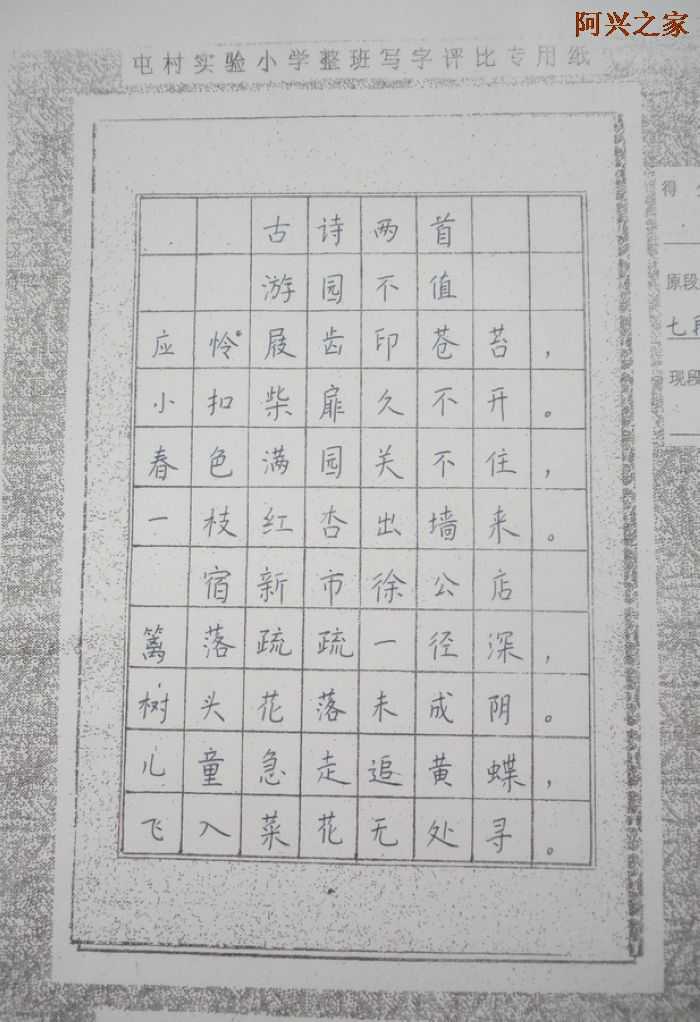 阿兴之家
屯村实验小学整班写字评比专用纸
古诗两首
游园不值
应怜屐齿印苍苔，
小扣柴扉久不开。
春色满园关不住，
一枝红杏出墙来。
宿新市徐公店
篱落疏疏一径深，
树头花落未成阴。
儿童急走追黄蝶，
飞入菜花无处寻。
得
原段
七
现段